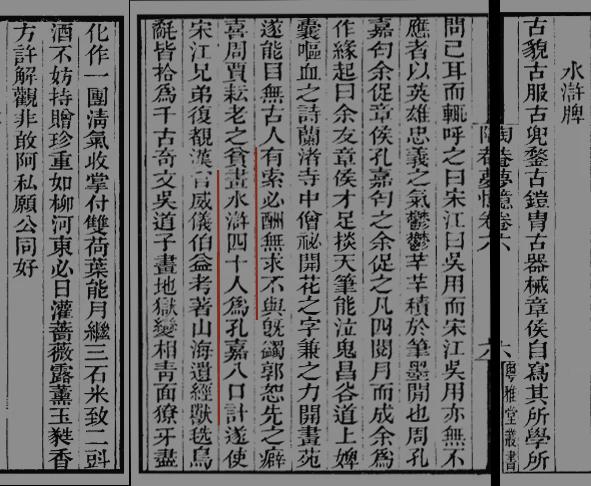 水滸牌
古貌古服古兜鍪古鎧胄古器械章侯自寫其所學所
陶菴夢憶卷六
六
粵雅堂叢書
問已耳而輒呼之曰宋江曰吳用而宋江吳用亦無不
應者以英雄忠義之氣鬱鬱芊芊積於筆墨閒也周孔
嘉匄余促章侯孔嘉匄之余促之凡四閱月而成余爲
作緣起曰余友章侯才足掞天筆能泣鬼昌谷道上婢
囊嘔血之詩蘭渚寺中僧祕開花之字兼之力開畫苑
遂能目無古人有索必酬無求不與旣蠲郭恕先之癖
喜周賈耘老之貧畫水滸四十人爲孔嘉八口計遂使
宋江兄弟復覩漢官威儀伯益考著山海遺經獸毨鳥
氄皆拾爲千古奇文吳道子畫地獄變相靑面獠牙盡
化作一團淸氣收掌付雙荷葉能月繼三石米致二㪷
酒不妨持贈珍重如柳河東必日灌薔薇露薰玉蕤香
方許解觀非敢阿私願公同好